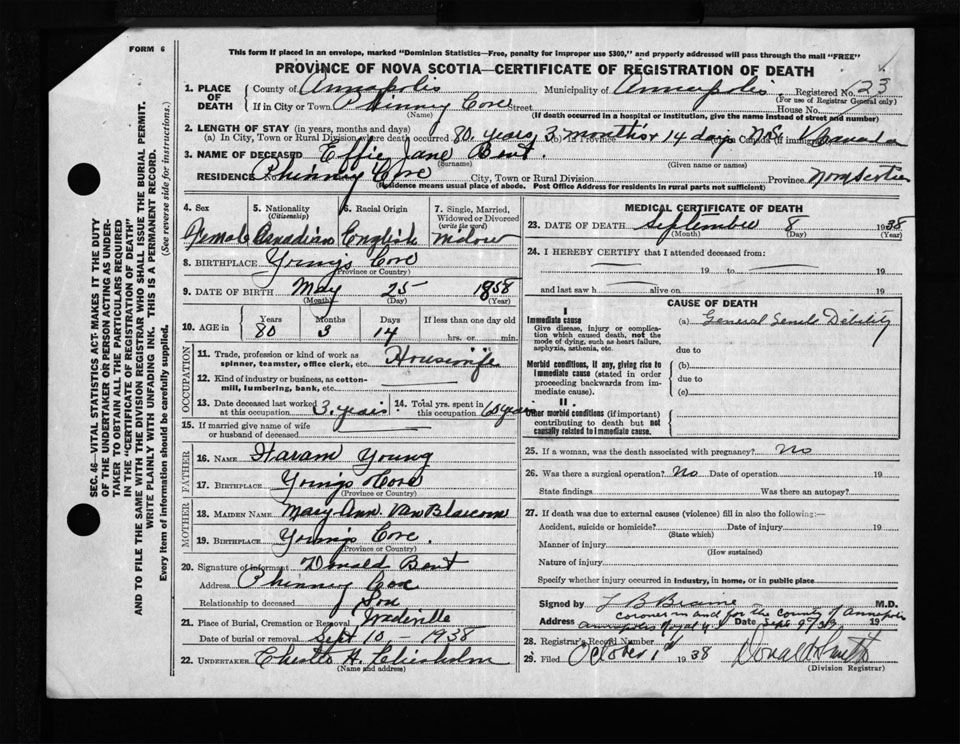 FORM 6
This form if placed in an envelope, marked "Dominion Statistics—Free, penalty for improper use $300," and properly addressed will pass through the mail "FREE"
PROVINCE OF NOVA SCOTIA—CERTIFICATE OF REGISTRATION OF DEATH
1. PLACE OF DEATH County of Annapolis Municipality of Annapolis. Registered No. 23
(For use of Registrar General only)
If in City or Town Phinney Cove Street House No.
(Name) (If death occurred in a hospital or institution, give the name instead of street and number)
2. LENGTH OF STAY (in years, months and days)
(a) In City, Town or Rural Division where death occurred 80 years, 3 months & 14 days (b) In Province N.S. (c) In Canada (if immigrant) Canada
3. NAME OF DECEASED Effie Jane Bent.
(Surname) (Given name or names)
RESIDENCE Phinney Cove City, Town or Rural Division Province Nova Scotia
(Residence means usual place of abode. Post Office Address for residents in rural parts not sufficient)
4. Sex Female
5. Nationality (Citizenship) Canadian
6. Racial Origin English
7. Single, Married, Widowed or Divorced (write the word) Widow
8. BIRTHPLACE Young's Cove
(Province or Country)
9. DATE OF BIRTH May 25 1858
(Month) (Day) (Year)
10. AGE in Years 80 Months 3 Days 14 If less than one day old hrs. or min.
OCCUPATION
11. Trade, profession or kind of work as spinner, teamster, office clerk, etc. Housewife
12. Kind of industry or business, as cotton-mill, lumbering, bank, etc.
13. Date deceased last worked at this occupation 3 years
14. Total yrs. spent in this occupation 60 years
15. If married give name of wife or husband of deceased
FATHER
16. NAME Haram Young
17. BIRTHPLACE Young's Cove
(Province or Country)
MOTHER
18. MAIDEN NAME Mary Ann Van Blarcom
19. BIRTHPLACE Young's Cove.
(Province or Country)
20. Signature of informant Donald Bent
Address Phinney Cove
Relationship to deceased Son
21. Place of Burial, Cremation or Removal
Date of burial or removal Sept 10, – 1938
22. UNDERTAKER H. Chisholm
(Name and address)
MEDICAL CERTIFICATE OF DEATH
23. DATE OF DEATH September 8 1938
(Month) (Day) (Year)
24. I HEREBY CERTIFY that I attended deceased from:
19 to 19
and last saw h alive on 19
CAUSE OF DEATH
I
Immediate cause
Give disease, injury or complication which caused death, not the mode of dying, such as heart failure, asphyxia, asthenia, etc.
(a) General Senile Debility
due to
Morbid conditions, if any, giving rise to Immediate cause (stated in order proceeding backwards from immediate cause).
(b)
due to
(c)
II
Other morbid conditions (if important) contributing to death but not causally related to Immediate cause.
25. If a woman, was the death associated with pregnancy? No
26. Was there a surgical operation? No Date of operation 19
State findings Was there an autopsy?
27. If death was due to external causes (violence) fill in also the following:—
Accident, suicide or homicide? Date of injury 19
(State which)
Manner of injury
(How sustained)
Nature of injury
Specify whether injury occurred in Industry, in home, or in public place
Signed by M.D.
coroner in and for the county of Annapolis
Address Annapolis Royal Date Sept 9 19
28. Registrar's Record Number
29. Filed October 1st 1938 Donald Smith
(Division Registrar)
SEC. 46—VITAL STATISTICS ACT—MAKES IT THE DUTY
OF THE UNDERTAKER OR PERSON ACTING AS UNDER-
TAKER TO OBTAIN ALL THE PARTICULARS REQUIRED
IN THE "CERTIFICATE OF REGISTRATION OF DEATH"
AND TO FILE THE SAME WITH THE DIVISION REGISTRAR WHO SHALL ISSUE THE BURIAL PERMIT.
WRITE PLAINLY WITH UNFADING INK. THIS IS A PERMANENT RECORD.
Every item of information should be carefully supplied. (See reverse side for instructions.)